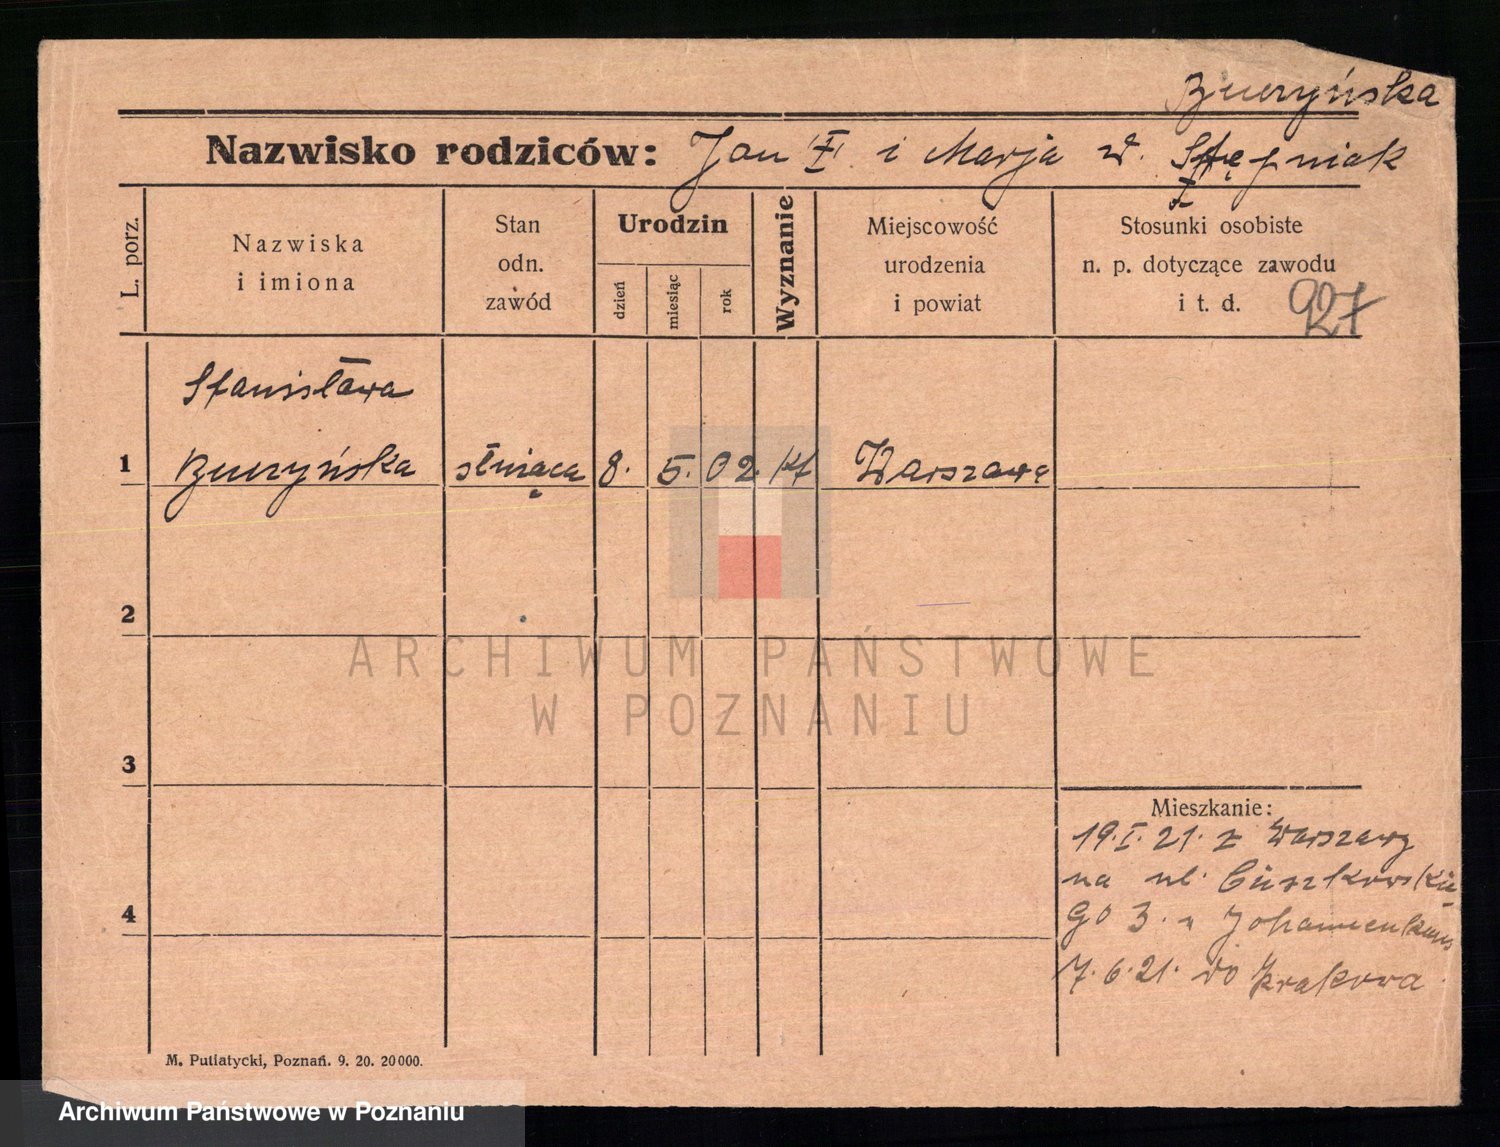 Buczyńska
Nazwisko rodziców: Jan i Marja
L. porz.
Nazwiska
i imiona
Stan
odn.
zawód
Urodzin
dzień
miesiąc
rok
Wyznanie
Miejscowość
urodzenia
i powiat
Stosunki osobiste
n. p. dotyczące zawodu
i t. d. 927
Stanisława
1 Buczyńska służąca 8. 5. 02 kt Warszawa
2
ARCHIWUM PAŃSTWOWE
W POZNANIU
3
Mieszkanie:
19.I.21. z Warszawy
na ul.
4
3.
7.6.21. do Krakowa
M. Putiatycki, Poznań. 9. 20. 20000.
Archiwum Państwowe w Poznaniu